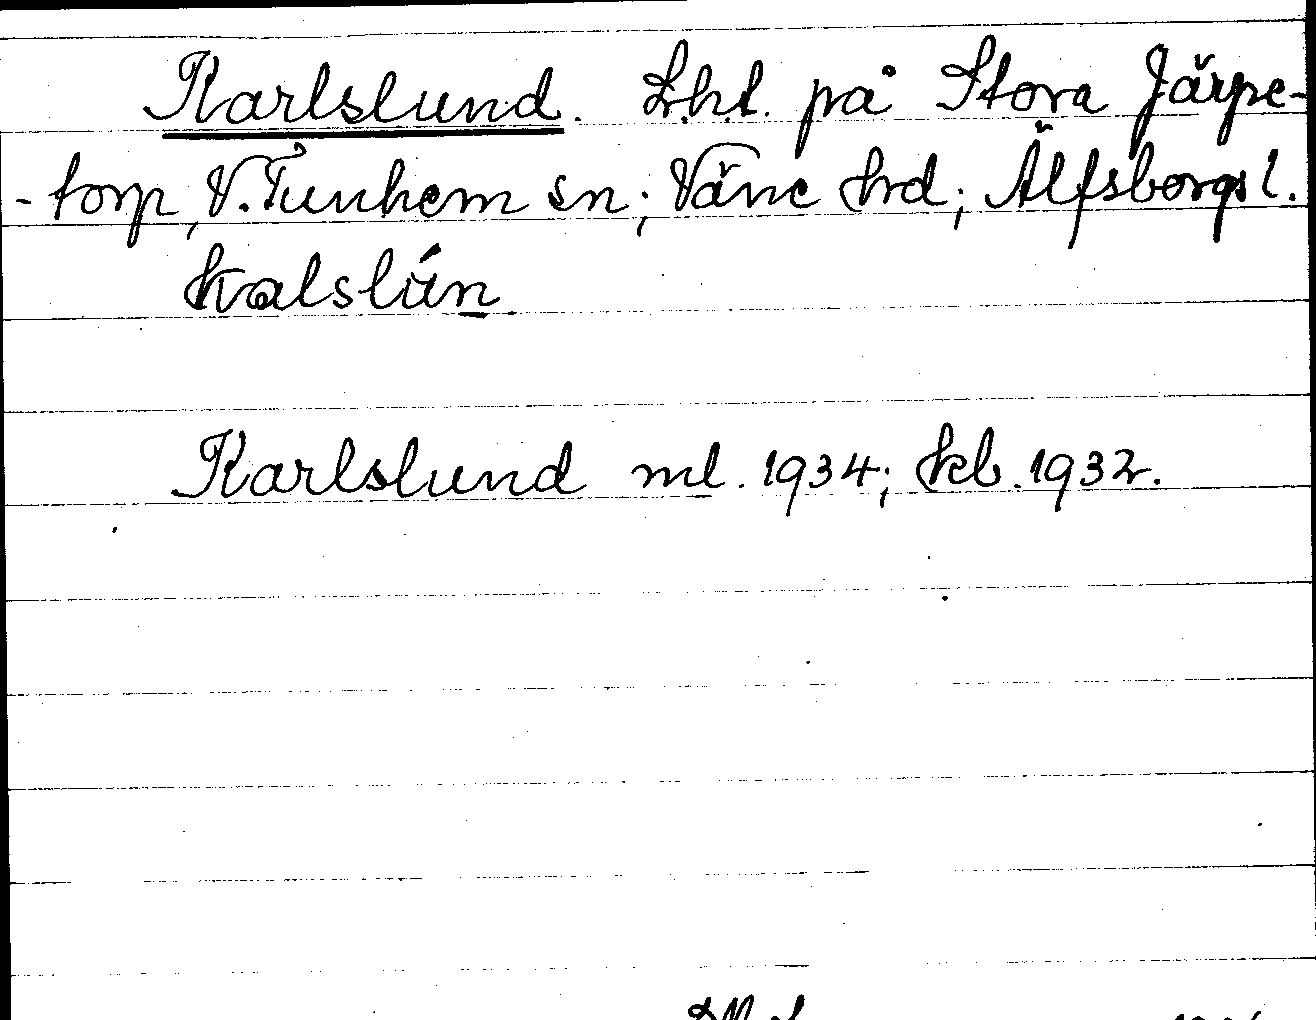 Karlslund. L.h.t. på Stora Järpe-
-torp, V. Tunhem sn; Väne hd; Älfsborgs l.
kalslún
Karlslund ml. 1934; kb. 1932.